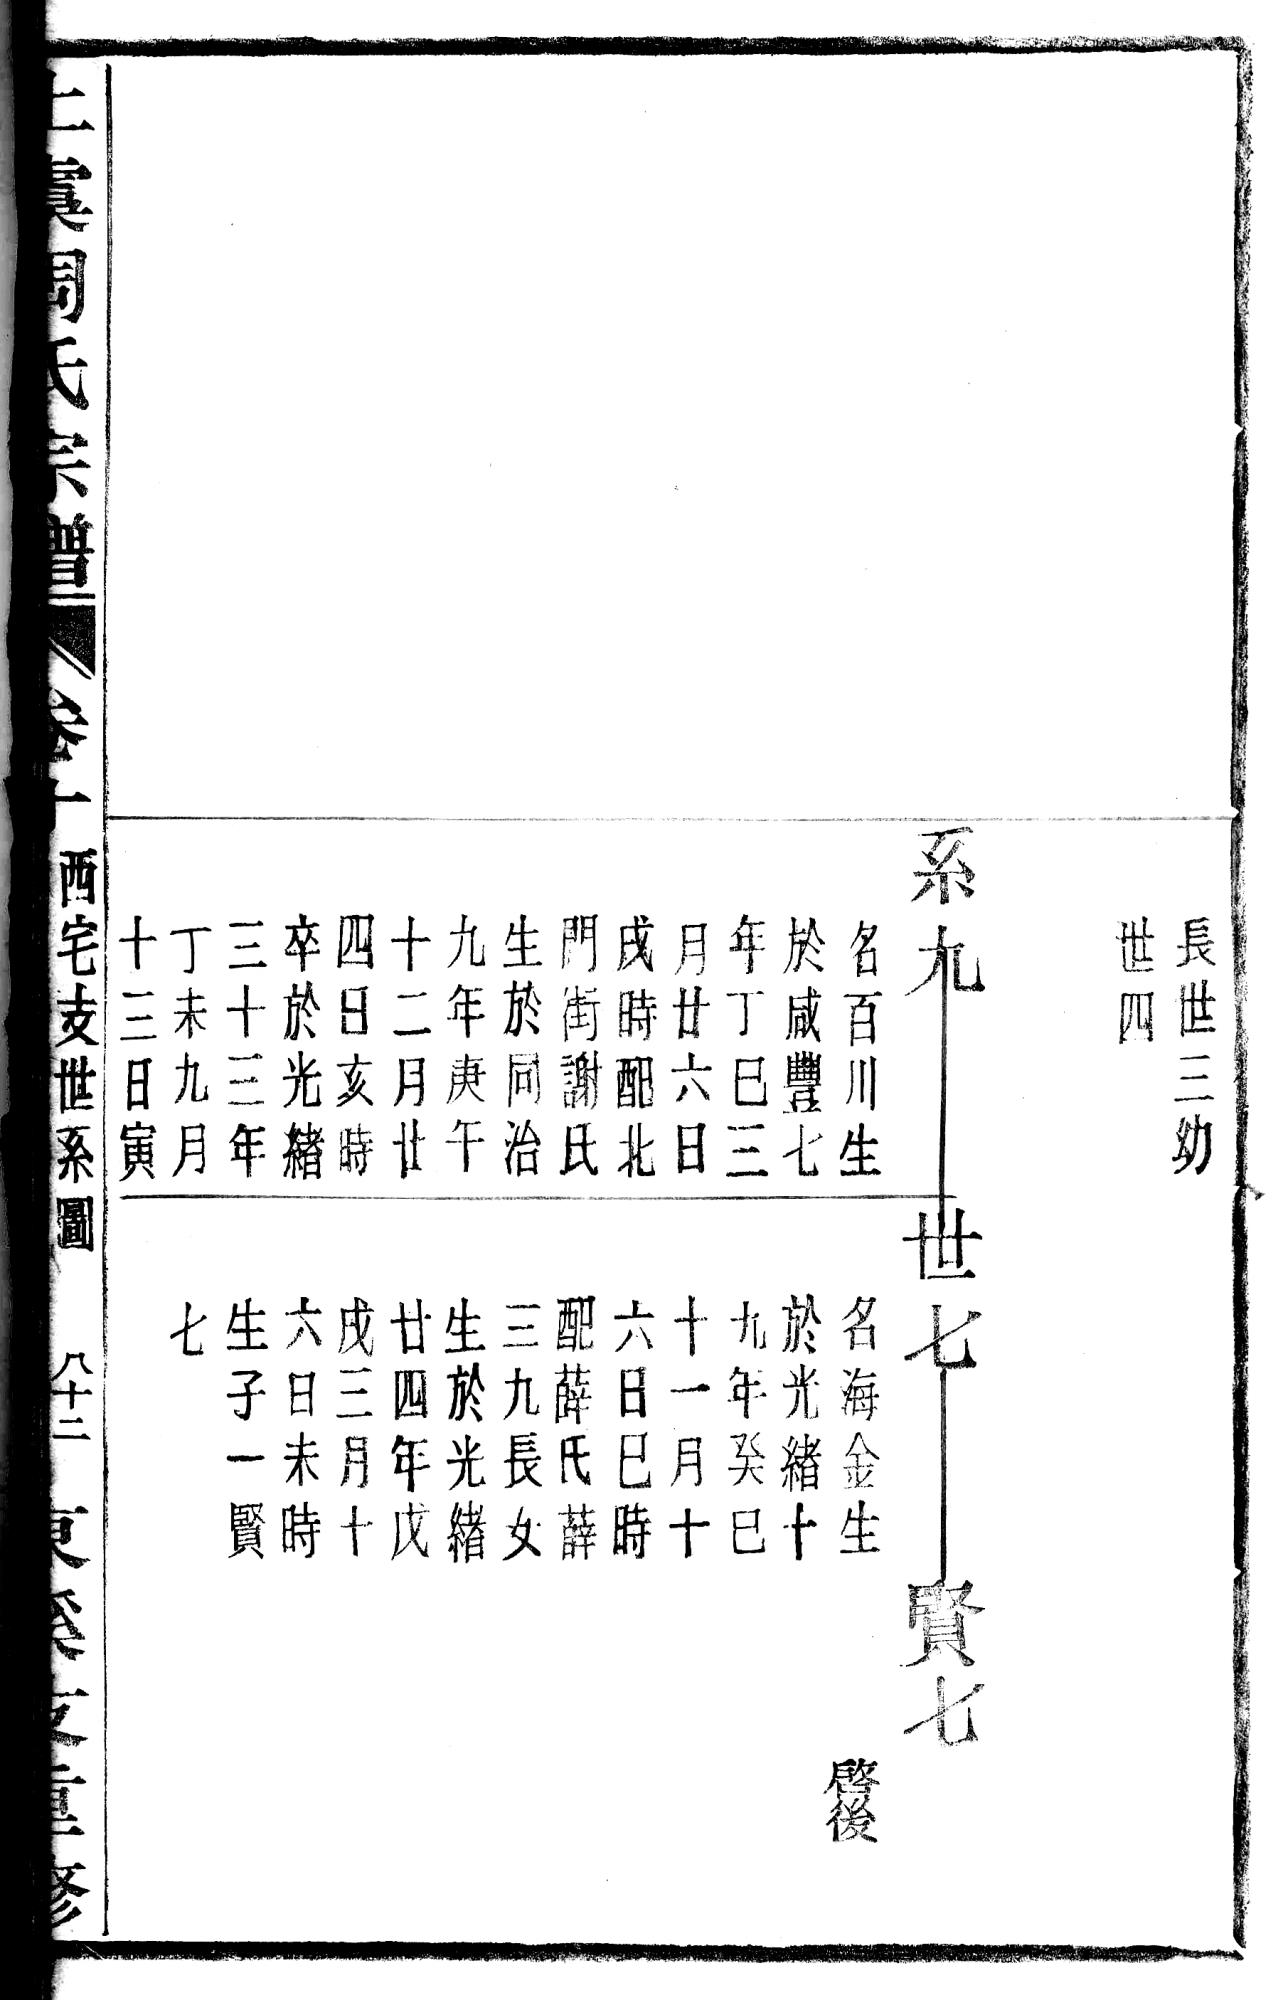 長世三幼
世四
系九
名百川生
於咸豐七
年丁巳三
月廿六日
戌時配北
門街謝氏
生於同治
九年庚午
十二月廿
四日亥時
卒於光緒
三十三年
丁未九月
十三日寅
世七
名海金生
於光緒十
九年癸巳
十一月十
六日巳時
配薛氏薛
三九長女
生於光緒
廿四年戊
戌三月十
六日未時
生子一賢
七
賢七
啓後
上虞周氏宗譜
卷十
西宅支世系圖
八十二
支重修